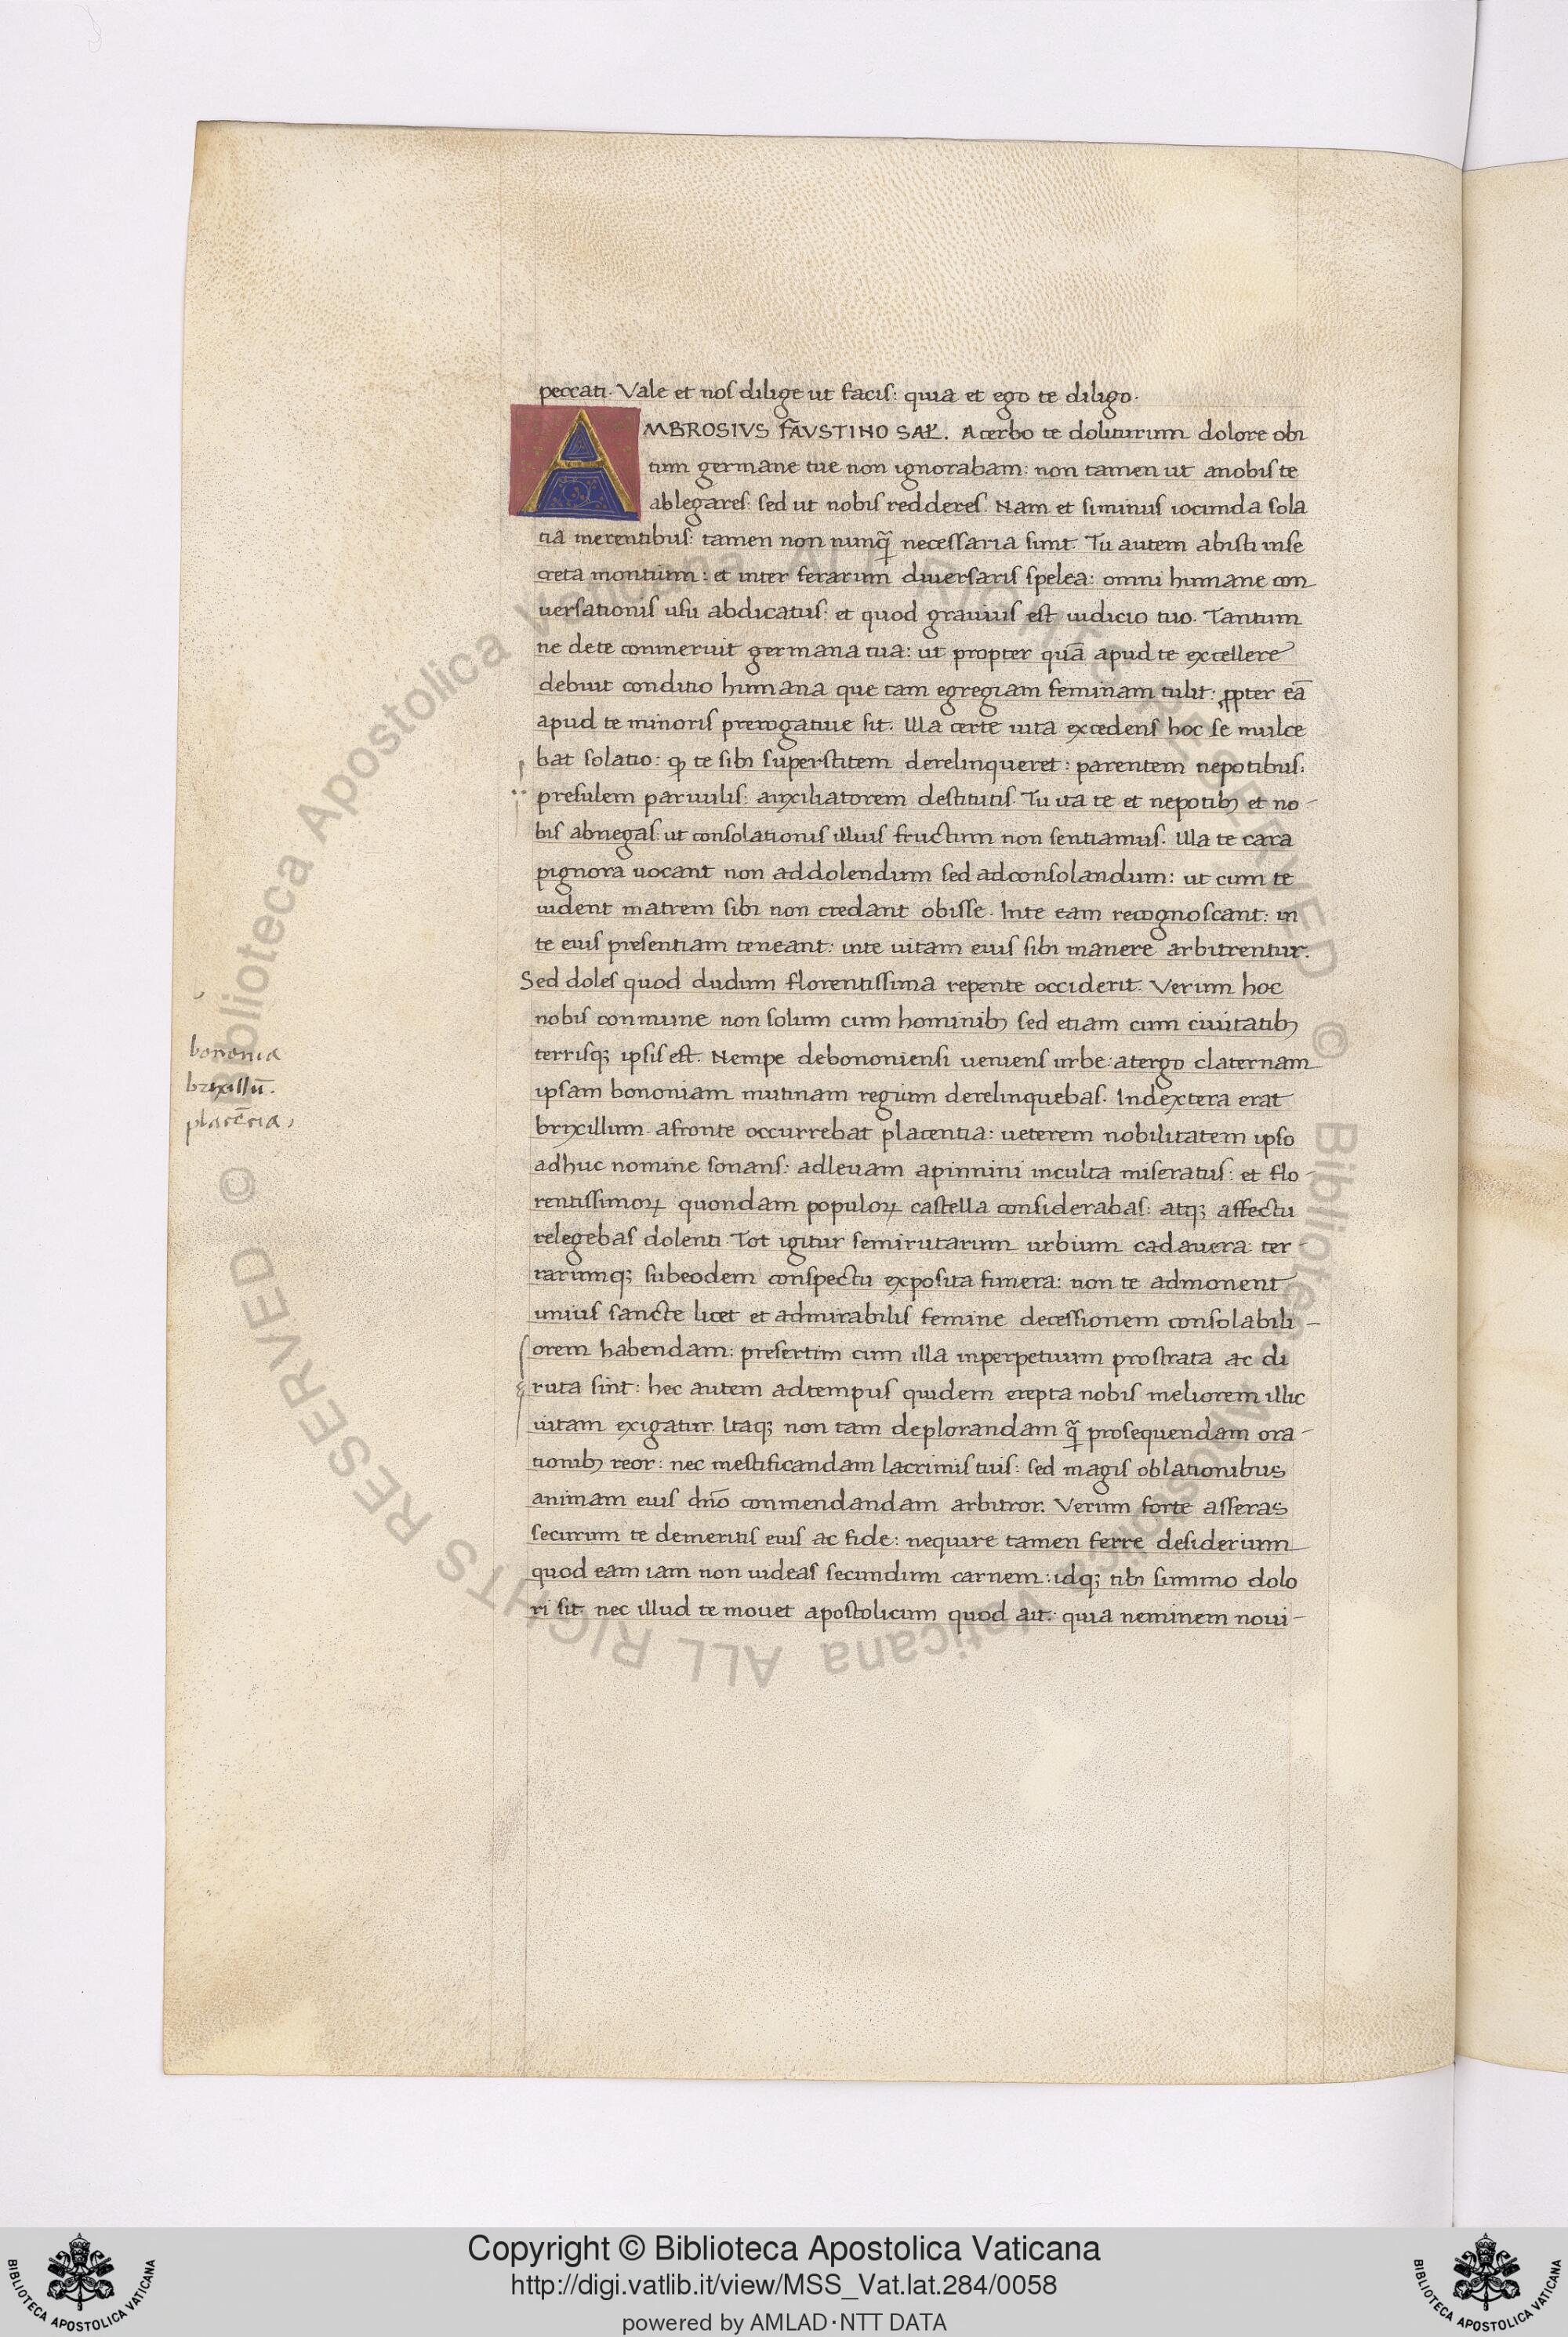 peccati. Vale et nos dilige ut facis: quia et ego te diligo.
AMBROSIVS FAVSTINO SAŁ. Acerbo te doliturum dolore obi
tum germane tue non ignorabam: non tamen ut anobis te
ablegares: sed ut nobis redderes. Nam et siminus iocunda sola
tia merentibus: tamen non nunq̃ necessaria sunt. Tu autem abisti inse
creta montium: et inter ferarum diversaris spelea: omni humane con
uersationis usu abdicatus: et quod grauius est iudicio tuo. Tantum
ne dete conmeruit germana tua: ut propter quã apud te excellere
debuit conditio humana que tam egregiam feminam tulit: ꝓpter eã
apud te minoris prerogatiue sit. Illa certe uita excedens hoc se mulce
bat solatio: ꝙ te sibi superstitem derelinqueret: parentem nepotibus:
presulem paruulis: auxiliatorem destitutis. Tu ita te et nepotibꝫ et no-
bis abnegas: ut consolationis illius fructum non sentiamus. Illa te cara
pignora uocant non addolendum sed adconsolandum: ut cum te
uident matrem sibi non credant obisse. Inte eam recognoscant: in
te eius presentiam teneant: inte uitam eius sibi manere arbitrentur.
Sed doles quod dudum florentissima repente occiderit. Verum hoc
nobis conmune non solum cum hominibꝫ sed etiam cum ciuitatibꝫ
terrisqꝫ ipsis est. Nempe debononiensi ueniens urbe: atergo claternam
ipsam bononiam mutinam regium derelinquebas. Indextera erat
brixillum. afronte occurrebat placentia: ueterem nobilitatem ipso
adhuc nomine sonans: adleuam apinnini inculta miseratus: et flo-
rentissimoꝝ quondam populoꝝ castella considerabas: atqꝫ affectu
relegebas dolenti. Tot igitur semirutarum urbium cadauera ter
rarumqꝫ subeodem conspectu exposita funera: non te admonent
unius sancte licet et admirabilis femine decessionem consolabili-
orem habendam: presertim cum illa inperpetuum prostrata ac di
ruta sint: hec autem adtempus quidem erepta nobis meliorem illic
uitam exigatur. Itaqꝫ non tam deplorandam q̃ prosequendam ora-
tionibꝫ reor: nec mestificandam lacrimis tuis: sed magis oblationibus
animam eius dño conmendandam arbitror. Verum forte asseras
securum te demeritis eius ac fide: nequire tamen ferre desiderium
quod eam iam non uideas secundum carnem: idqꝫ tibi summo dolo
ri sit. nec illud te mouet apostolicum quod ait: quia neminem noui-
bononia
brixillũ.
placẽcia,
Copyright © Biblioteca Apostolica Vaticana
http://digi.vatlib.it/view/MSS_Vat.lat.284/0058
powered by AMLAD·NTT DATA
BIBLIOTECA APOSTOLICA VATICANA
BIBLIOTECA APOSTOLICA VATICANA
© Biblioteca Apostolica Vaticana ALL RIGHTS RESERVED © Biblioteca Apostolica Vaticana ALL RIGHTS RESERVED